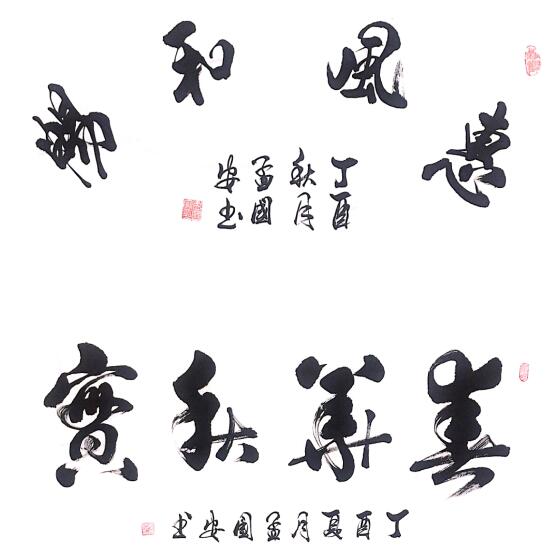 惠風和暢
丁酉
秋月
孟國
安书
春華秋實
丁酉夏月孟國安书